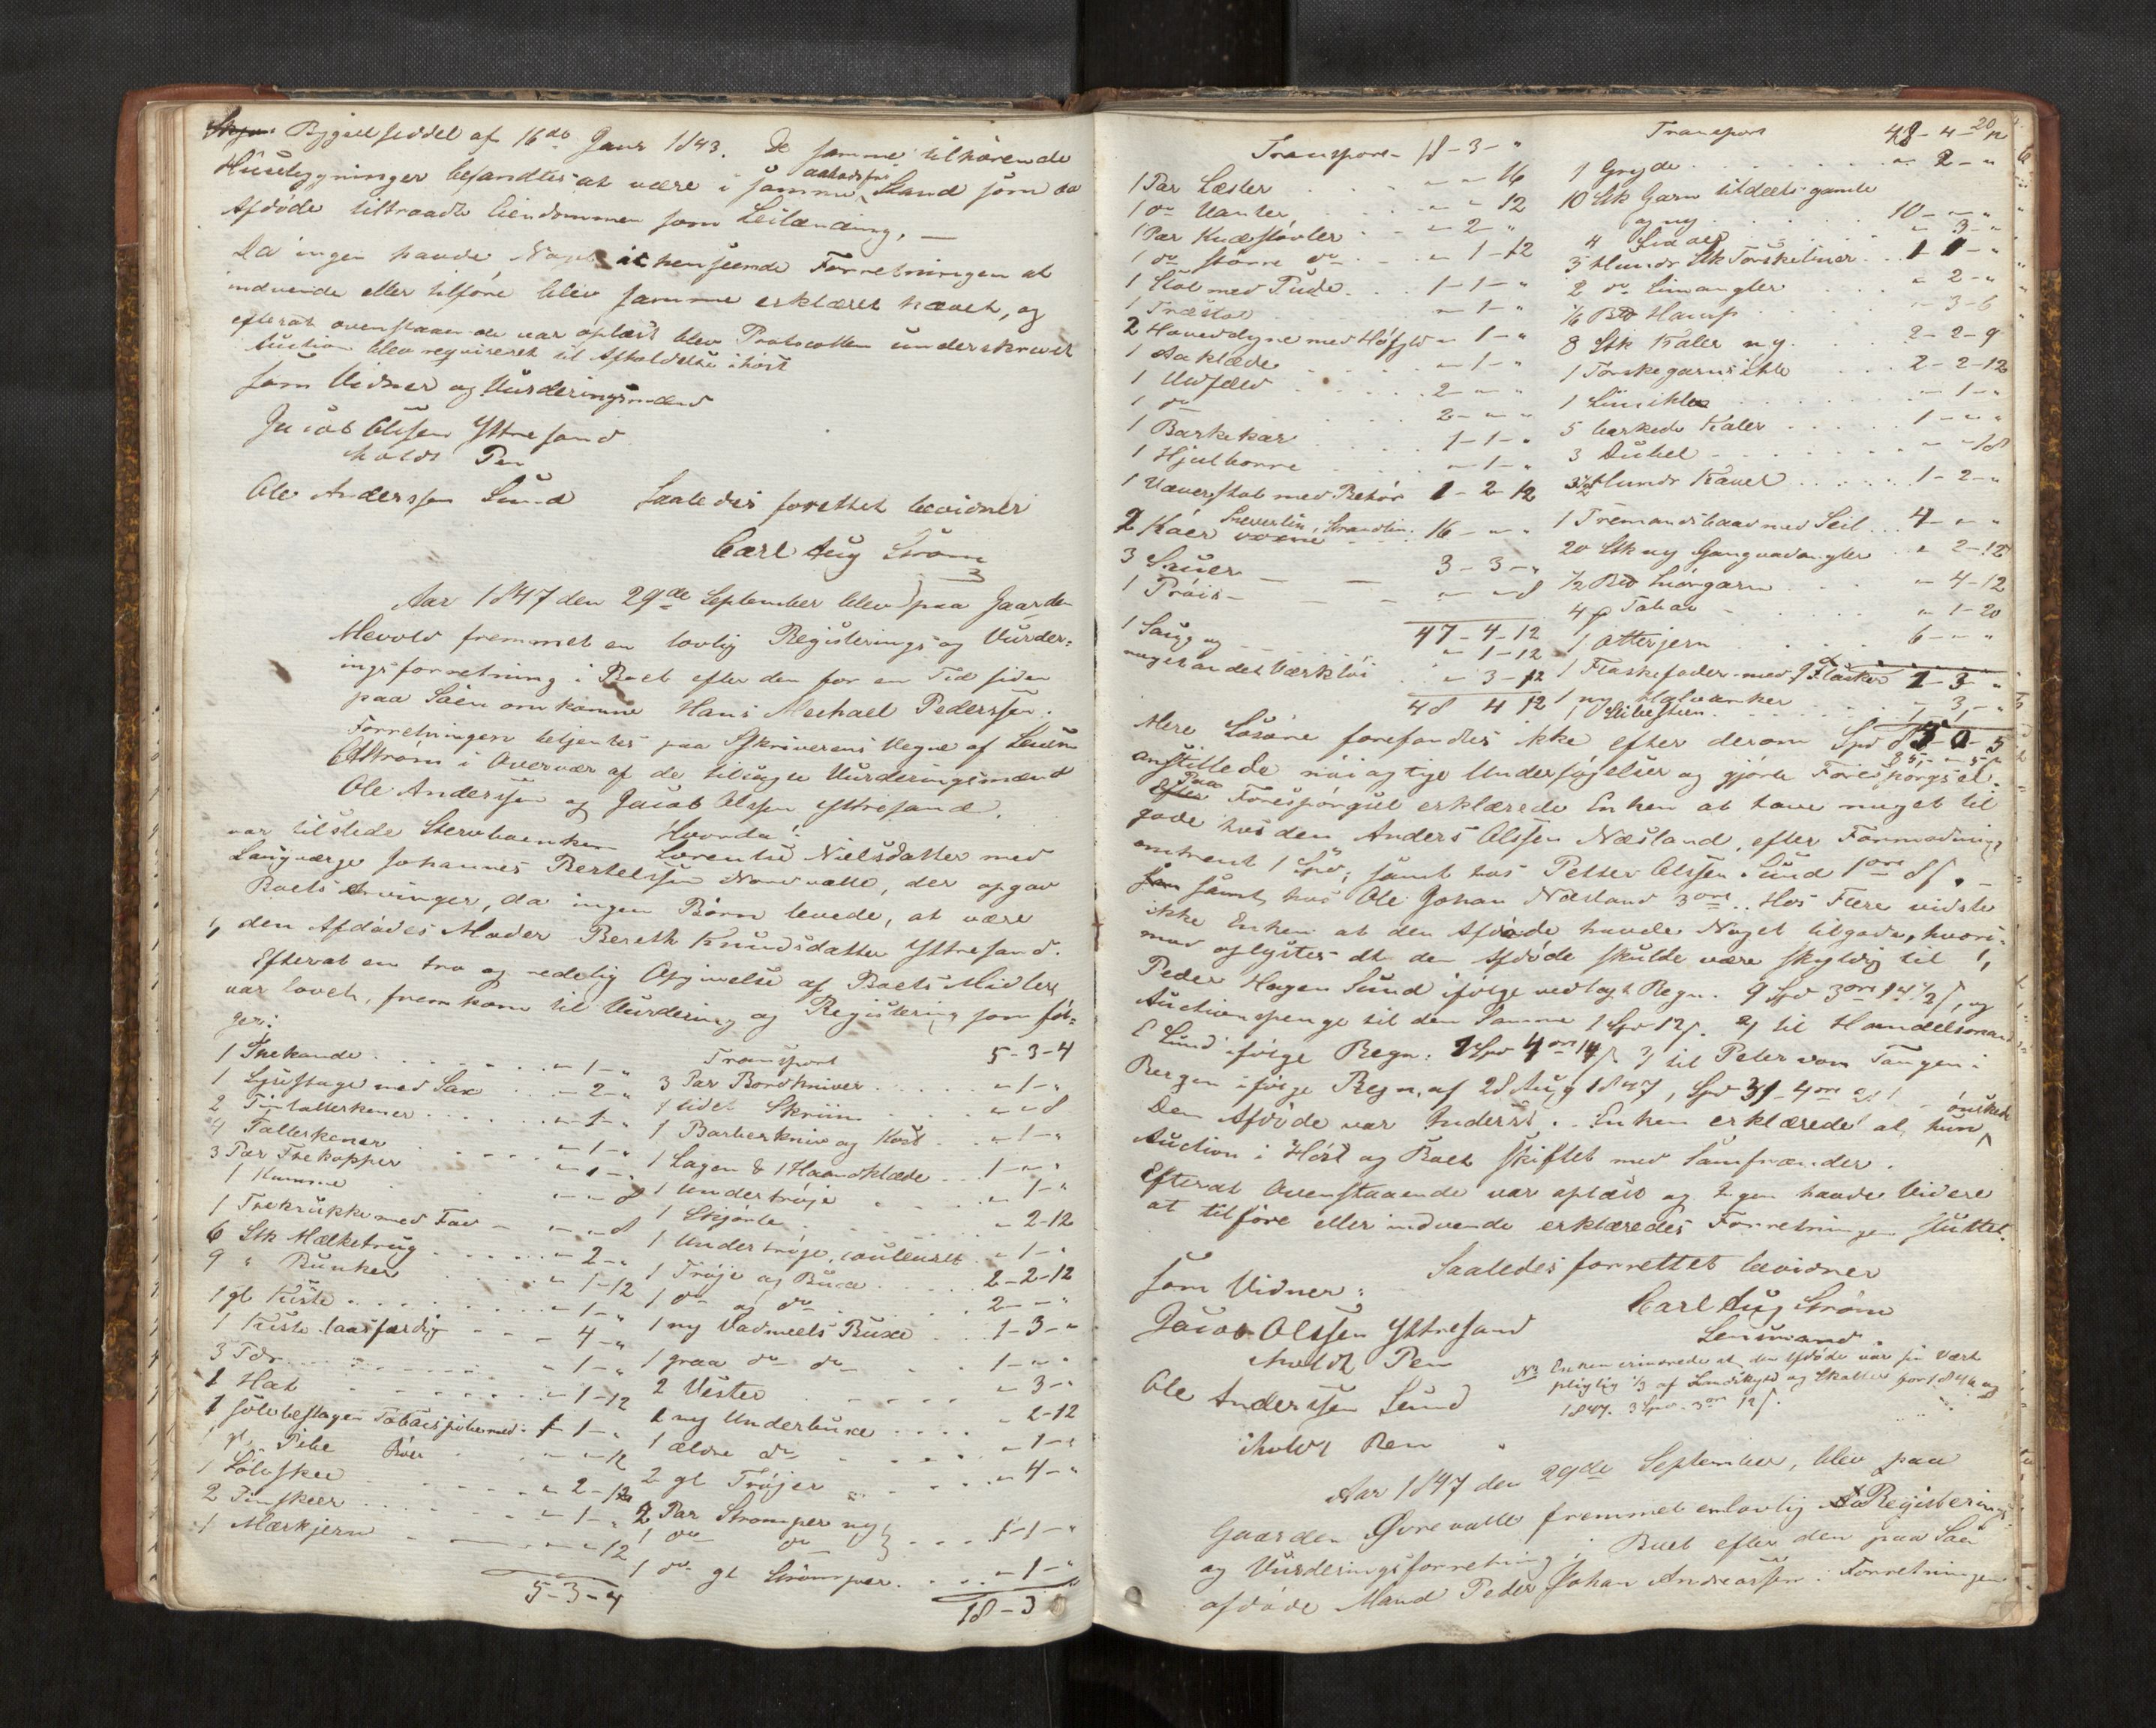 Bygselseddel af 16de Janr 1843. De samme tilhørende
Huusbygninger befandtes at være i samme aabodsfri Stand som da
Afdøde tiltraadte Eiendommen som Leilænding, —
Da ingen havde Noget i henseende Forretningen at
indvende eller tilføre blev samme erklæret hævet, og
efterat ovenstaaende var oplæst blev Protocollen underskrevet
Auction blev requireret til Afholdelse i høst
Som Vidner og Vurderingsmænd
Jacob Olssen Yttresand
holdt Pen
Ole Anderssen Sund Saaledes forettet bevidner
Carl Aug Strøm
Aar 1847 den 29de September blev paa Gaarden
Mevold fremmet en lovlig Registerings og Vurder=
ingsforretning i Boet efter den for en Tid siden
paa Søen omkomne Hans Mechael Pederssen.
Forretningen betjentes paa Skriverens Vegne af Lensm
CAStrøm i Overvær af de tilsagte Vurderingsmænd
Ole Anderssen og Jacob Olssen Yttresand.
var tilstede Stervboenken Hvorda! Lorentse Nielsdatter med
Laugværge Johannes Bertelssen Nordvalle, der opgav
Boets Arvinger, da ingen Børn levede, at være
1, den Afdødes Moder Bereth Knudsdatter Yttresand.
Efterat en tro og redelig Opgivelse af Boets Midler
var lovet, fremkom til Vurdering og Registering som føl=
ger:
1 Thekande . . . . „ 1 - „
1 Lysestage med Sax . . „ 2 - „
2 Tintallerkener . . . „ 1 - „
4 Tallerkener . . . „ 1 - „
3 Par Thekopper „ 1 - „
1 Kumme „ „ 8
1 Thekrukke med Fad „ „ 8
6 Stk Mælketrug . . . „ 2 - „
9 „ Bunker „ 1 - 12
1 gl Kiste . . . . „ 1 - „
1 Kiste laasfærdig „ 4 - „
3 Tdr . . . „ 1 - „
1 Hat . . . „ 1 - 12
1 sølvbeslagen Tobacspibe med Rør 1 - „
1 gl. Pibe „ „ 12
1 Sølvskee „ 2 - 12
2 Tinskeer . . . . „ 1 - „
1 Mærkjern . . . „ „ 12
5-3-4
Transport 5-3-4
3 Par Bordkniver . . . „ 1 - „
1 lidet Skriin . . . „ „ 8
1 Barberkniv og Kost . . „ 1 - „
1 Lagen & 1 Haandklæde . . 1 - „ „
1 Undertrøje . . . . „ 1 - „
1 Skjorte . . . . „ 2-12
1 Undertrøje, couleuret . „ 1 - „
1 Trøje og Buxe . . . 2-2-12
1 do og do . . . . 2 - „ „
1 ny Vadmels Buxe . . . 1-3-„
1 graa do do . . . 1 - „ „
2 Vester . . . . „ 3 - „
1 ny Underbuxe . . . . „ 2-12
1 ældre do . . . „ 1 - „
2 gl Trøjer . . . . „ 4 - „
2 Par Strømper ny
1 do do . . . 1-1-„
1 do gl Strømper . . . „ 1 - „
18-3
Transport 18-3-„
1 Par Læster . . . „ „ 16
1 do Vanter . . . „ „ 12
1 Par Knæstøvler . . „ 2 - „
1 do større do . . . „ 1-12
1 Stol med Pude . . 1-1-„
1 Træstol . . . „ 1 - „
2 Hoveddyne med Høfyld „ 1 - „
1 Aaklæde . . . „ 1 - „
1 Uldfæld . . . 2 - „ „
1 do . . . 2 - „ „
1 Barkekar . . . 1-1-„
1 Hjulborre . . . „ 1 - „
1 Væverstol med Behør 1-2-12
2 Kører voxne Sneverlin, Strandlin 16 - „ „
3 Sauer — — 3-3-„
1 Prøis — — „ „ 8
47-4-12
1 Saug og „ 1-12
noget andet Værktøi „ 3-12
48 4 12
Transport 48-4-20
1 Gryde . . . „ 2 - „
10 Stk Garn tildeels gamle
og ny . . . 10 - „ „
4 . . . „ 3 - „
3 Hundr Stk Torskeliner . . . 1 1 - „
2 do Limangler . . . „ 2 - „
1/6 Bd Hamp . . . „ 3-6
8 Stk Kaler ny . . . 2-2-9
1 Torskegarnsihle . . . 2-2-12
1 Liinihle . . . . „ 1 - „
5 barkede Kaler . . . . . 1 - „ „
3 Dubel . . . . „ „ 18
3 1/2 Hundr Kavel . . . . . 1-2-„
1 Tremandsbaad med Seil . . . 4 - „ „
20 Stk ny Gangvadangler . . „ 2-12
1/2 Bd Liøngarn . . . „ 4-12
4 Tobac . . . „ 1-20
1 Otterjern . . . . 6 - „ „
1 Flaskefoder med 9 Flasker 1-3-„
1 ny Halvanker
1 Slibesteen . . . „ 3, - „
Mere Løsøre forefandtes ikke efter derom Spd 85-0-5
anstillede nøiagtige Undersøgelser og gjorte Forespørgsel.
Paa Forespørgsel erklærede Enken at have noget til
gode hos den Anders Olssen Næsland, efter Formodning
omtrent 1 Spd, samt hos Petter Olssen Sund 1 ort 8 s. —
samt hos Ole Johan Næsland 3 ort. Hos Flere vidste
ikke Enken at den Afdøde havde Noget tilgode, hvori-
mod oplystes at den Afdøde skulde være skyldig til 1,
Peder Hagen Sund ifølge vedlagt Regn. 9 Spd 3 ort 14 1/2 s, og
Auctionspenge til den Samme 1 Spd 12 s. 2) til Handelsmand
E Lund ifølge Regn. 2 Spd 4 ort 14 s 3) til Peter vom Tangen i
Bergen ifølge Regn. af 28 Aug 1847, Spd 31-4 ort 21 s
Den Afdøde var Inderst. . Enken erklærede at hun ønskede
Auction i Høst og Boet skiftet med Samfrænder.
Efterat Ovenstaaende var oplæst og Ingen havde Videre
at tilføre eller indvende erklæredes Forretningen sluttet.
Saaledes forrettet bevidner
Som Vidner: Carl Aug Strøm
Jacob Olssen Yttresand Lensmand.
iholdt Pen
Ole Anderssen Sund
iholdt Pen
NB Enken erindrede at den Afdøde var sin Vært
pligtig 1/3 af Landskyld og Skatter for 1846 og
1847. 3 Spd. 3 ort 12 s.
Aar 1847 den 29de September, blev paa
Gaarden Øvrevalle fremmet en lovlig Registerings
og Vurderingsforretning i Boet efter den paa Søen
afdøde Mand Peder Johan Andreassen. Forretningen